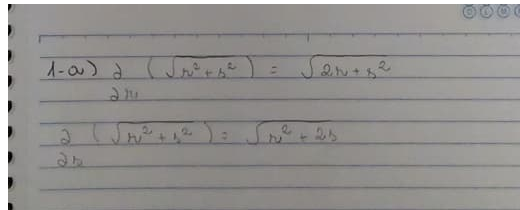 1-a) ∂ (√r² + s²) = √2r + s²
∂r
∂ (√r² + s²) = √r² + 2s
∂s